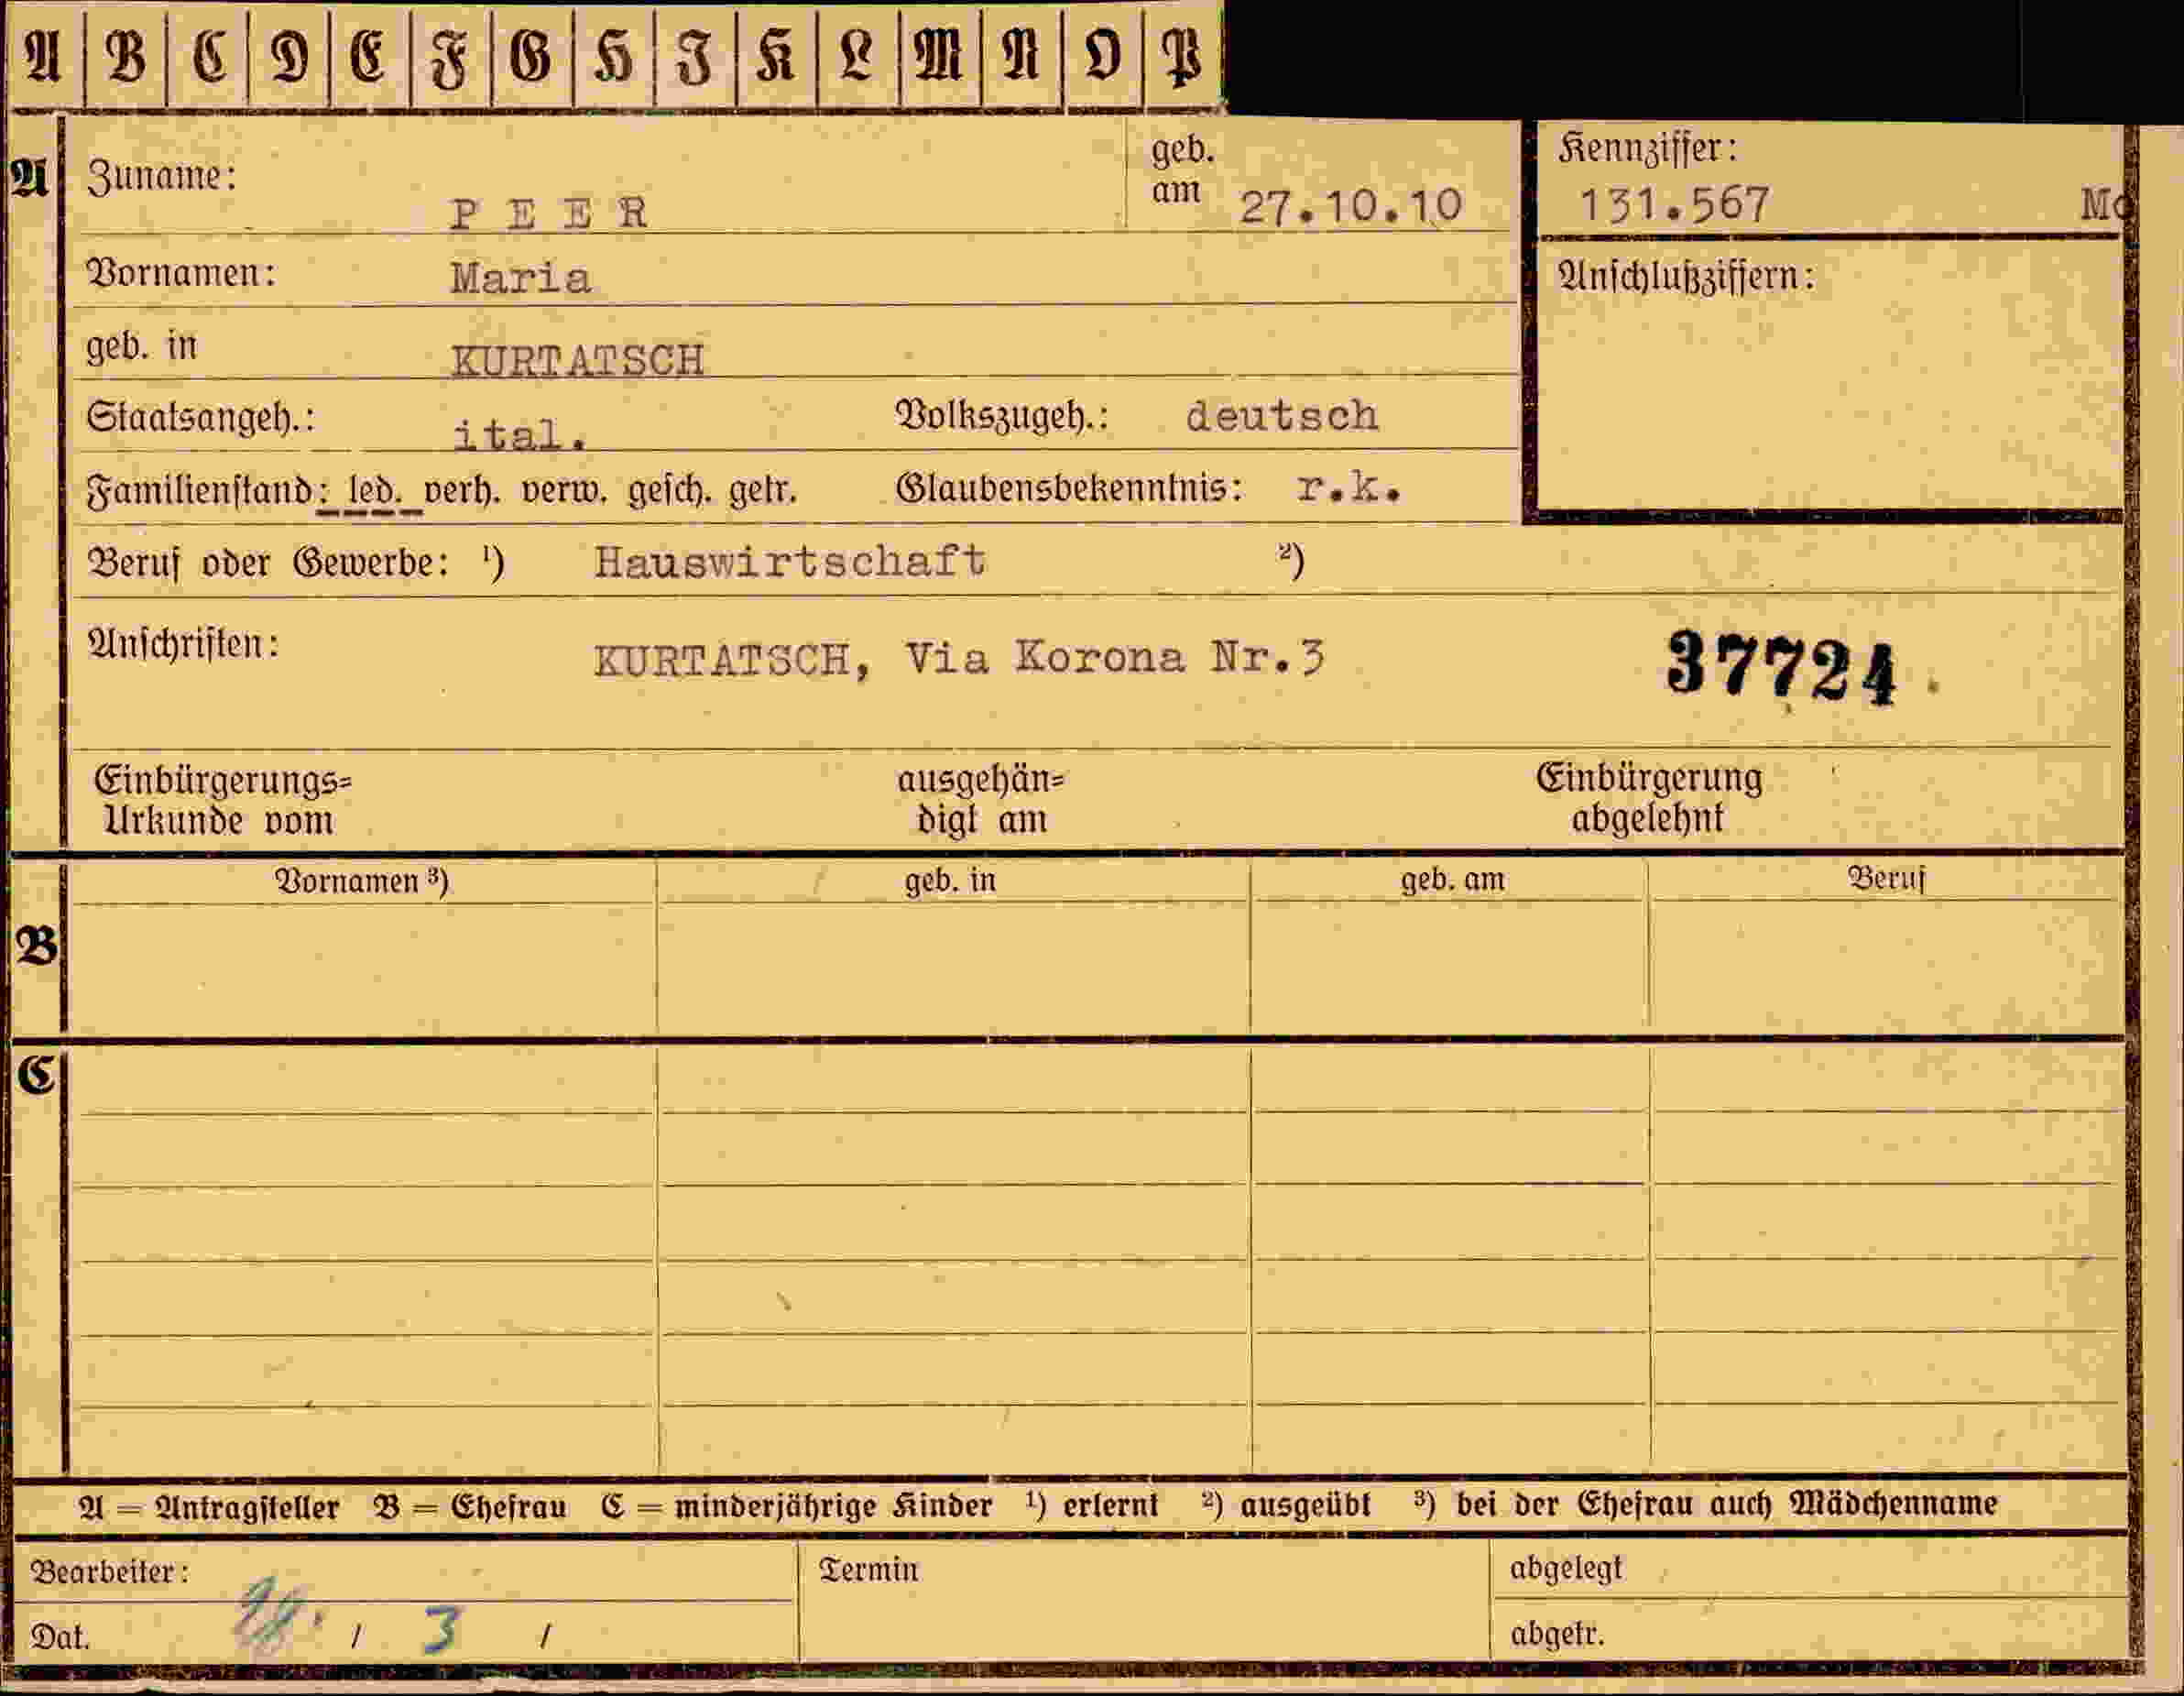 A B C D E F G H I K L M N O P
A Zuname: PEER geb. am 27.10.10 Kennziffer: 131.567 Mo
Vornamen: Maria Anschlußziffern:
geb. in KURTATSCH
Staatsangeh.: ital. Volkszugeh.: deutsch
Familienstand: led. verh. verw. gesch. getr. Glaubensbekenntnis: r.k.
Beruf oder Gewerbe: ¹) Hauswirtschaft ²)
Anschriften: KURTATSCH, Via Korona Nr.3 37724
Einbürgerungs= ausgehän= Einbürgerung
Urkunde vom digt am abgelehnt
Vornamen ³) geb. in geb. am Beruf
B
C
A = Antragsteller B = Ehefrau C = minderjährige Kinder ¹) erlernt ²) ausgeübt ³) bei der Ehefrau auch Mädchenname
Bearbeiter: Termin abgelegt
Dat. / 3 / abgetr.